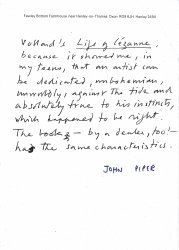 Fawley Bottom Farmhouse near Henley-on-Thames Oxon
Vollard's Life of Cézanne,
because it showed me, in
my teens, that an artist can
be dedicated, unbohemian,
unworldly, against the tide and
absolutely true to his instincts,
which happened to be right.
The book – by a dealer, too! –
has the same characteristics.
JOHN PIPER